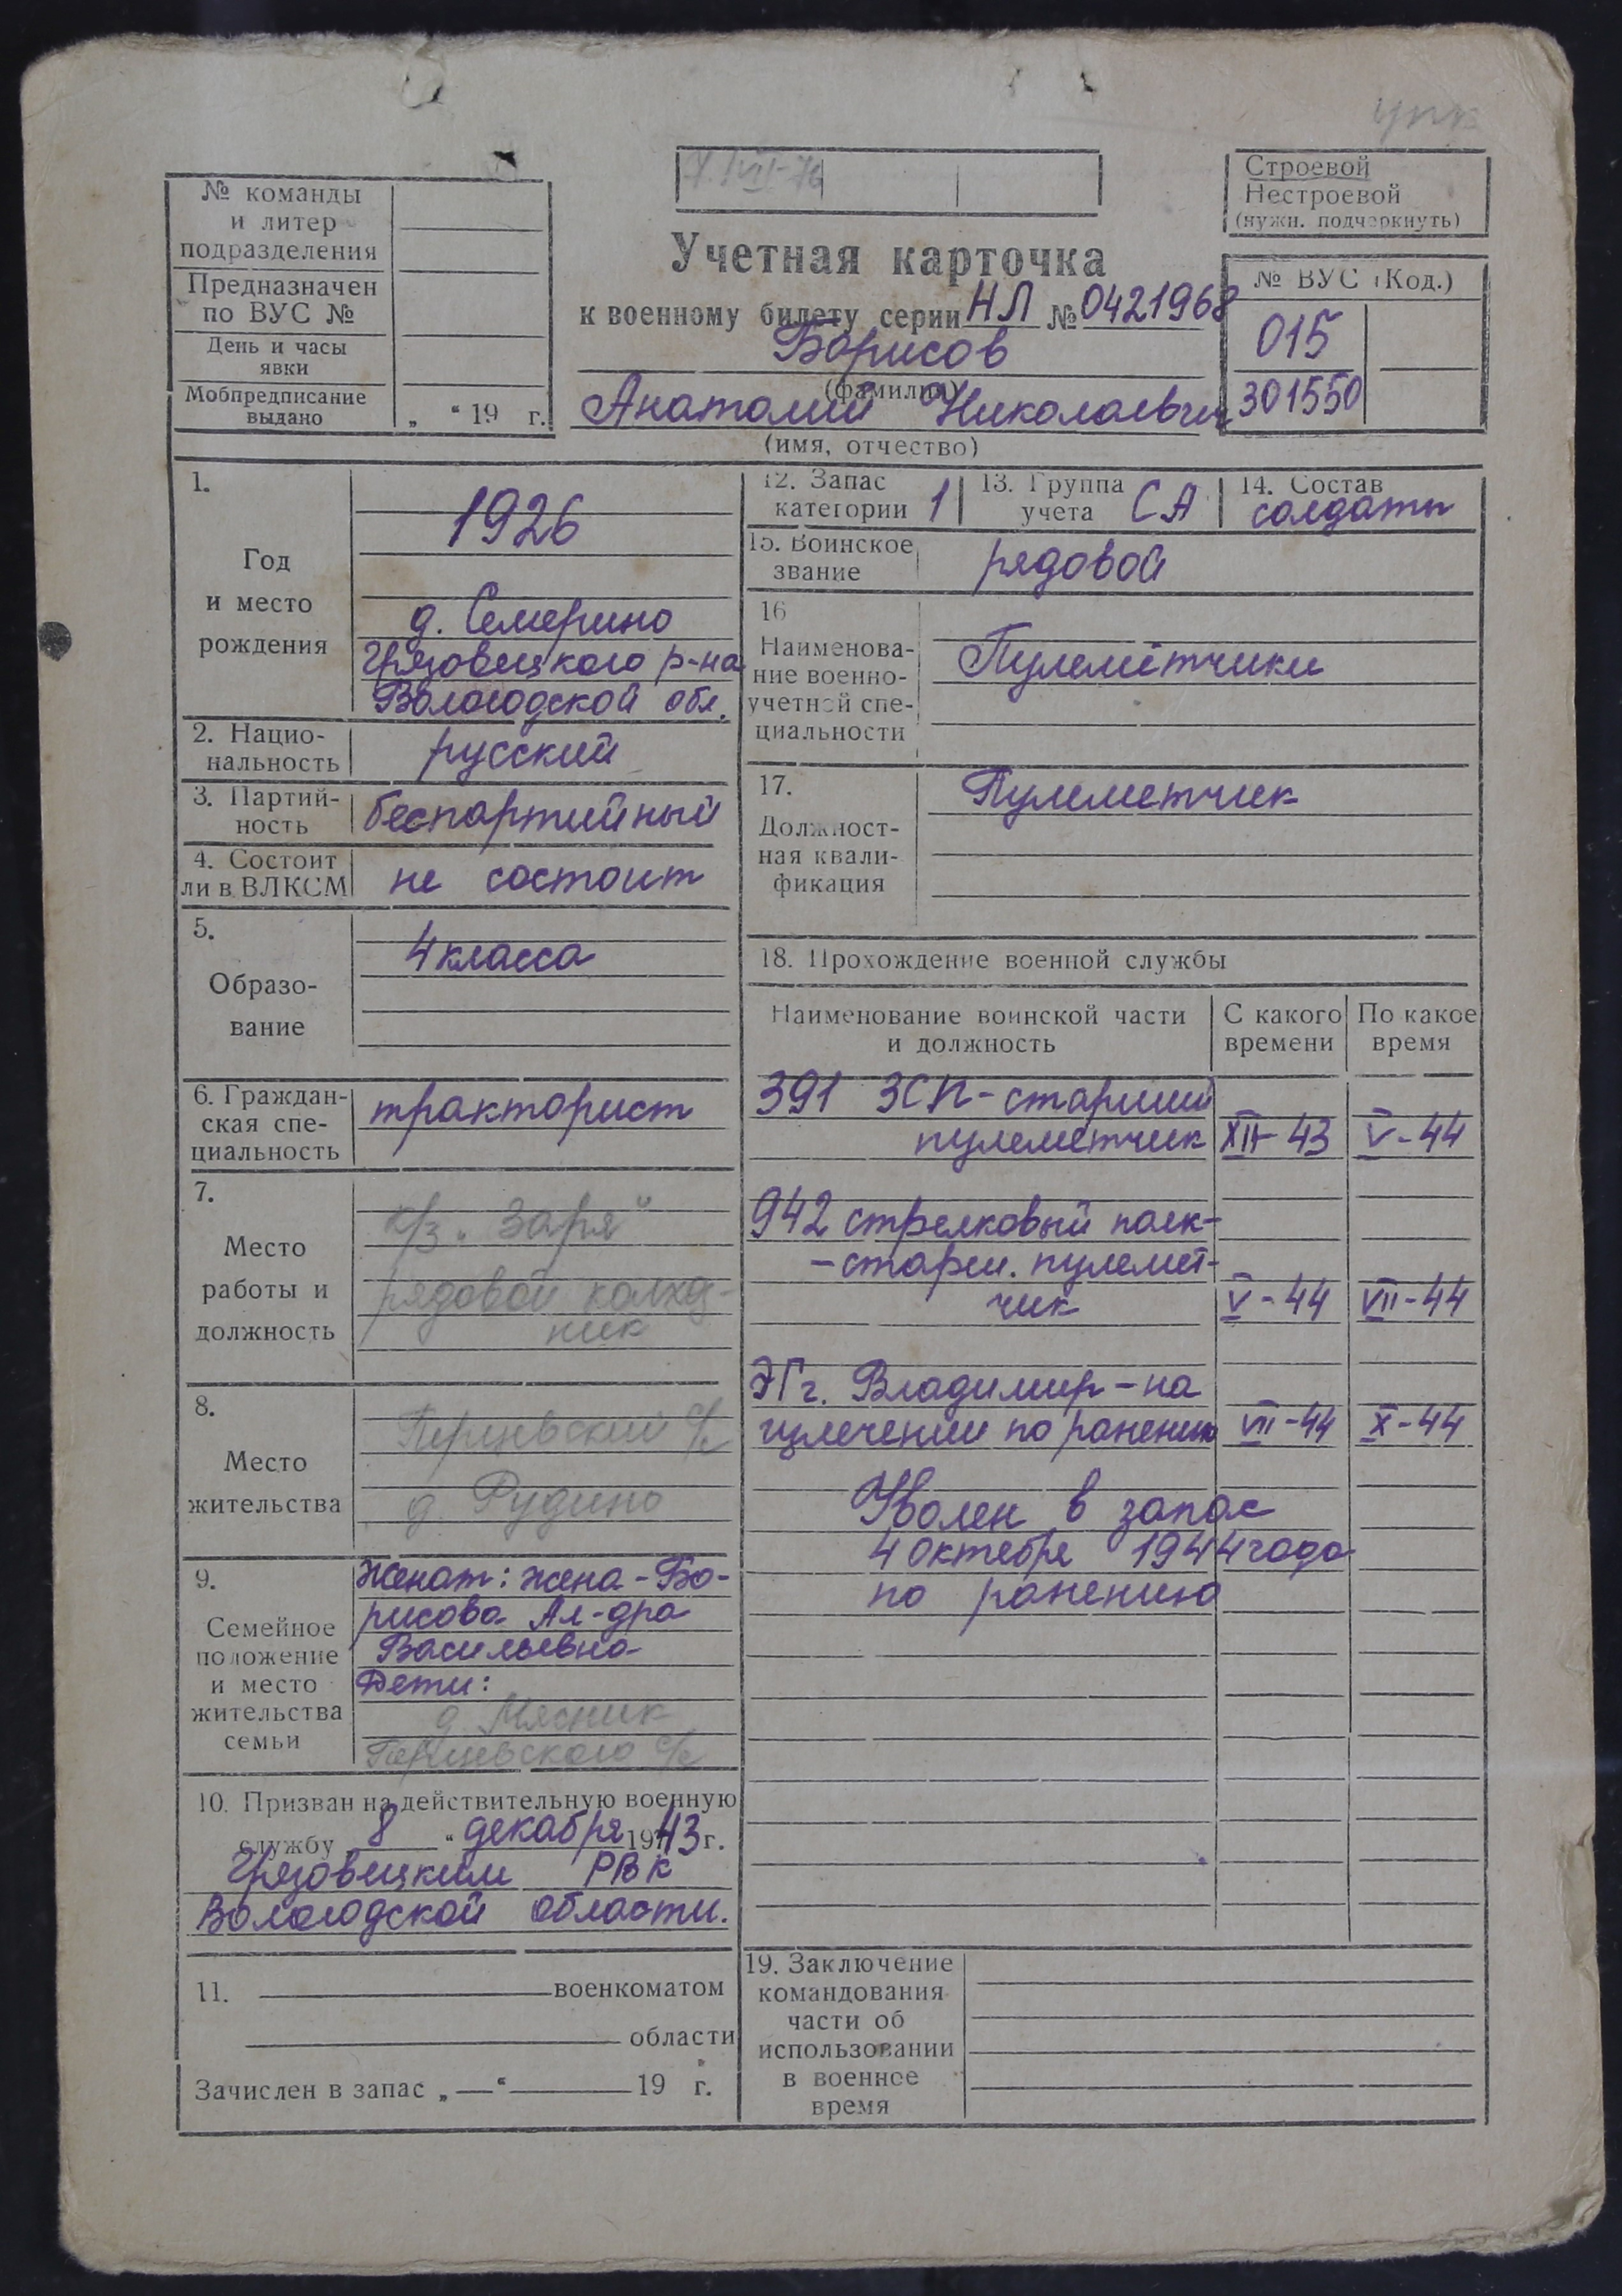 упк
7.VIII-76
№ команды
и литер
подразделения
Предназначен
по ВУС №
День и часы
явки
Мобпредписание
выдано
„ “ 19 г.
Строевой
Нестроевой
(нужн. подчеркнуть)
Учетная карточка
к военному билету серии НЛ № 0421968
Борисов
(фамилия)
Анатолий Николаевич
(имя, отчество)
№ ВУС (Код.)
015
301550
1.
Год
и место
рождения
1926
д. Семерино
Грязовецкого р-на
Вологодской обл.
2. Нацио-
нальность
русский
3. Партий-
ность
беспартийный
4. Состоит
ли в ВЛКСМ
не состоит
5.
Образо-
вание
4 класса
6. Граждан-
ская спе-
циальность
тракторист
7.
Место
работы и
должность
к/з „Заря“
рядовой колхоз-
ник
8.
Место
жительства
Перцевский с/с
д. Рудино
9.
Семейное
положение
и место
жительства
семьи
Женат: жена - Бо-
рисова Ал-дра
Васильевна
Дети:
д. Мясник
Перцевского с/с
10. Призван на действительную военную
службу 8 “ декабря 1943 г.
Грязовецким РВК
Вологодской области.
11. военкоматом
области
Зачислен в запас „—“ 19 г.
12. Запас
категории 1
13. Группа
учета СА
14. Состав
солдаты
15. Воинское
звание
рядовой
16
Наименова-
ние военно-
учетной спе-
циальности
Пулемётчики
17.
Должност-
ная квали-
фикация
Пулеметчик
18. Прохождение военной службы
Наименование воинской части
и должность
С какого
времени
По какое
время
391 ЗСП - старший
пулемётчик XII-43 V-44
942 стрелковый полк-
- старш. пулемёт-
чик V-44 VII-44
ЭГ г. Владимир - на
излечении по ранению VII-44 X-44
Уволен в запас
4 октября 1944 года
по ранению
19. Заключение
командования
части об
использовании
в военное
время